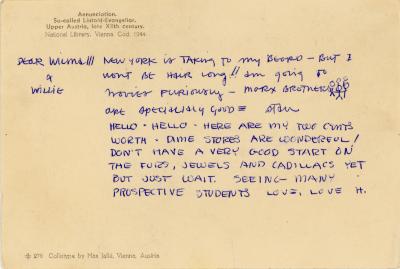 Annunciation.
So-called Liutold-Evangeliar.
Upper Austria, late XIIth century.
National Library, Vienna, Cod. 1244.
DEAR WILMA!!! NEW YORK IS TAKING TO MY BEARD - BUT I
& WONT BE HAIR LONG!! Am going to
WILLIE movies furiously - MARX BROTHERS
are specially good = Stan
HELLO - HELLO - HERE ARE MY TWO CENTS
WORTH - DIME STORES ARE WONDERFUL!
DON'T HAVE A VERY GOOD START ON
THE FURS, JEWELS AND CADILLACS YET
BUT JUST WAIT. SEEING MANY
PROSPECTIVE STUDENTS LOVE, LOVE H.
270 Collotype by Max Jaffé, Vienna, Austria